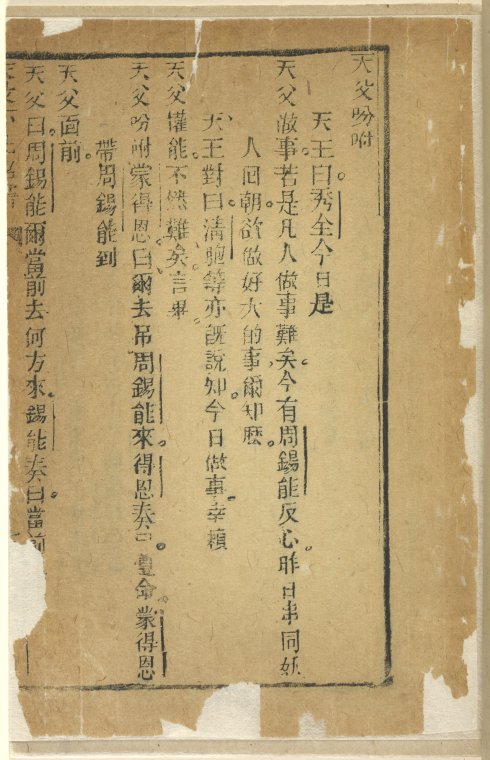 天父吩咐
天王曰秀全今日是
天父做事若是凡人做事難矣今有周錫能反心昨日串同妖
人回朝欲做好大的事爾知麽
天王對曰清胞等亦既說知今日做事幸賴
天父權能不然難矣言畢
天父吩咐蒙得恩曰爾去吊周錫能來得恩奏曰遵命蒙得恩
帶周錫能到
天父面前
天父曰周錫能爾當前去何方來錫能奏曰當前